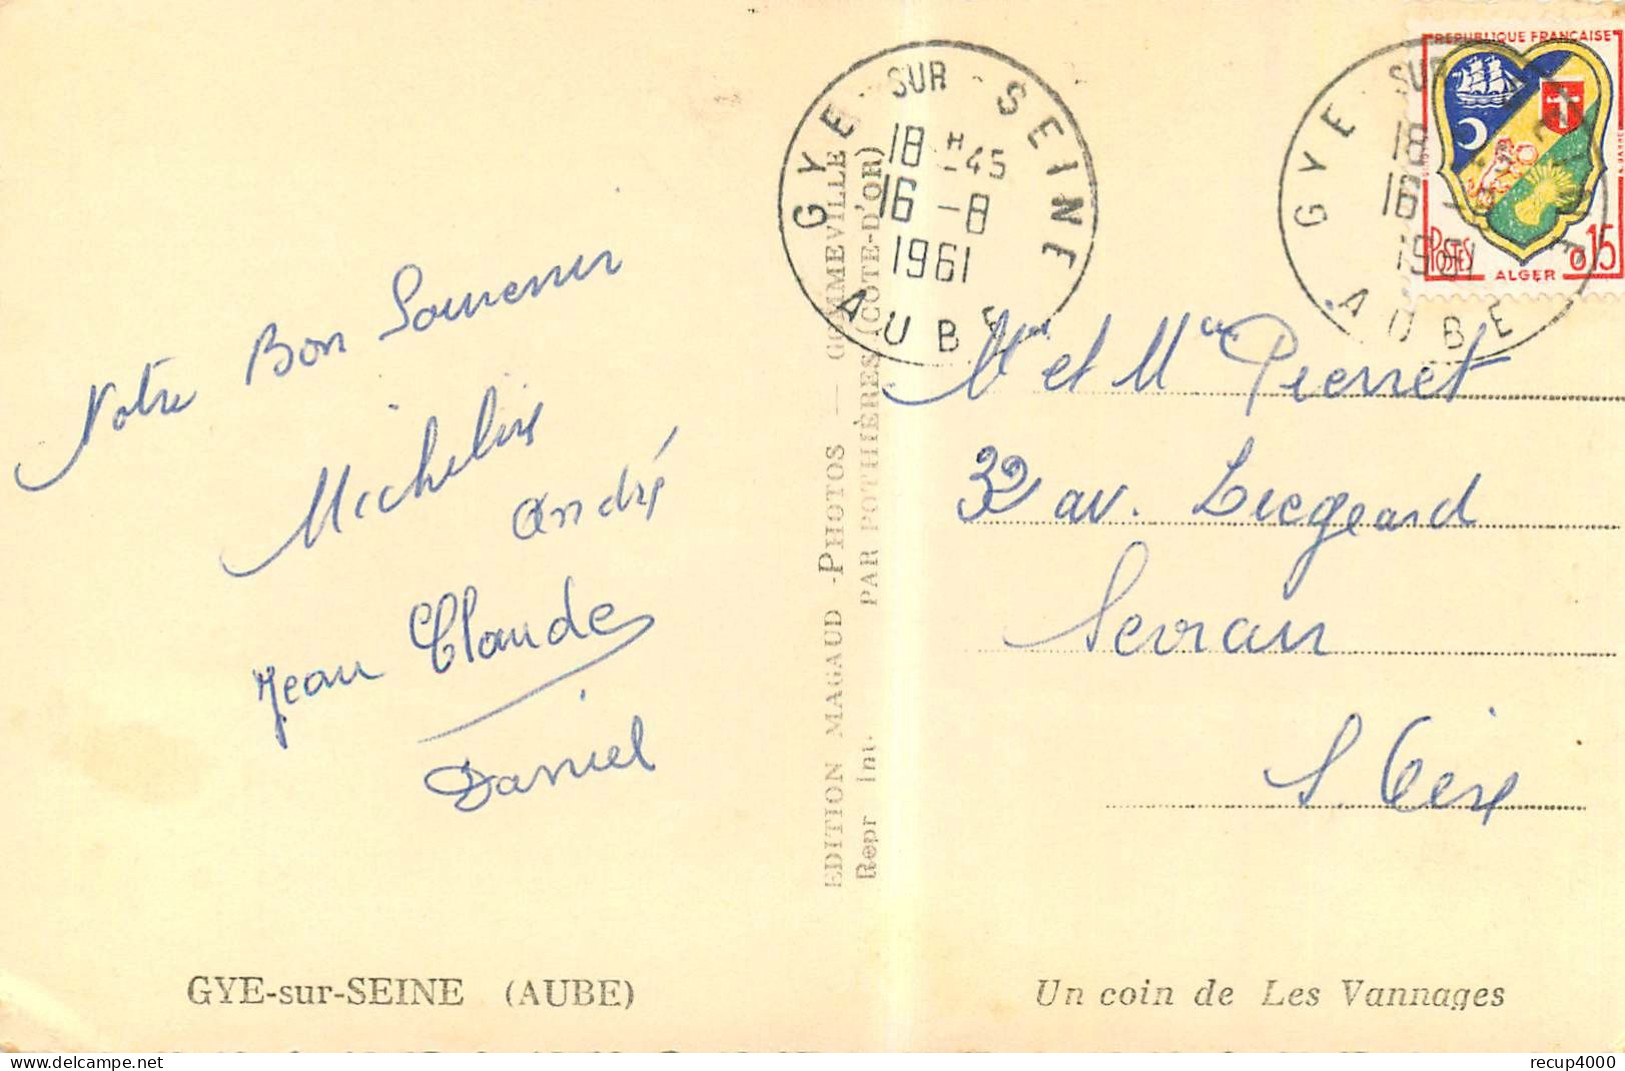 Notre Bon Souvenir
Micheline
André
Jean Claude
Daniel
GYE-sur-SEINE (AUBE)
EDITION MAGAUD - PHOTOS — GOMMEVILLE
PAR POTHIÈRES (COTE-D'OR)
Repr int.
GYE - SUR - SEINE
18 H -45
16 -8
1961
AUBE
GYE - SUR
18
16
1961
AUBE
REPUBLIQUE FRANÇAISE
POSTES
0,15
ALGER
Mr et Mme Pierret
32 av. Liegeard
Sevran
S. et Oise
Un coin de Les Vannages
recup4000